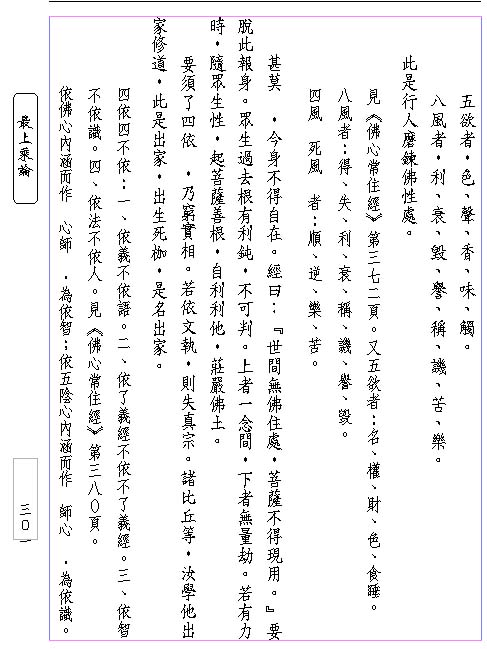 五欲者‧色、聲、香、味、觸。
八風者‧利、衰、毀、譽、稱、譏、苦、樂。
此是行人磨鍊佛性處。
見《佛心常住經》第三七二頁。又五欲者：名、權、財、色、食睡。
八風者：得、失、利、衰、稱、譏、譽、毀。
四風 死風 者：順、逆、樂、苦。
甚莫 ‧今身不得自在。經曰：『世間無佛住處‧菩薩不得現用。』要
脫此報身。眾生過去根有利鈍‧不可判。上者一念間‧下者無量劫。若有力
時‧隨眾生性‧起菩薩善根‧自利利他‧莊嚴佛土。
要須了四依 ‧乃窮實相。若依文執‧則失真宗。諸比丘等‧汝學他出
家修道‧此是出家‧出生死枷‧是名出家。
四依四不依：一、依義不依語。二、依了義經不依不了義經。三、依智
不依識。四、依法不依人。見《佛心常住經》第三八０頁。
依佛心內涵而作 心師 ‧為依智；依五陰心內涵而作 師心 ‧為依識。
最上乘論
三０一